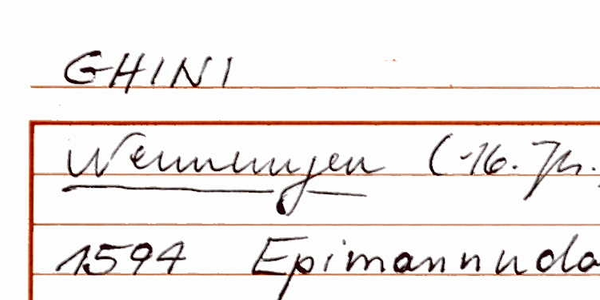 GHINI
Nennungen (-16. Jh.
1594 Epimannuda